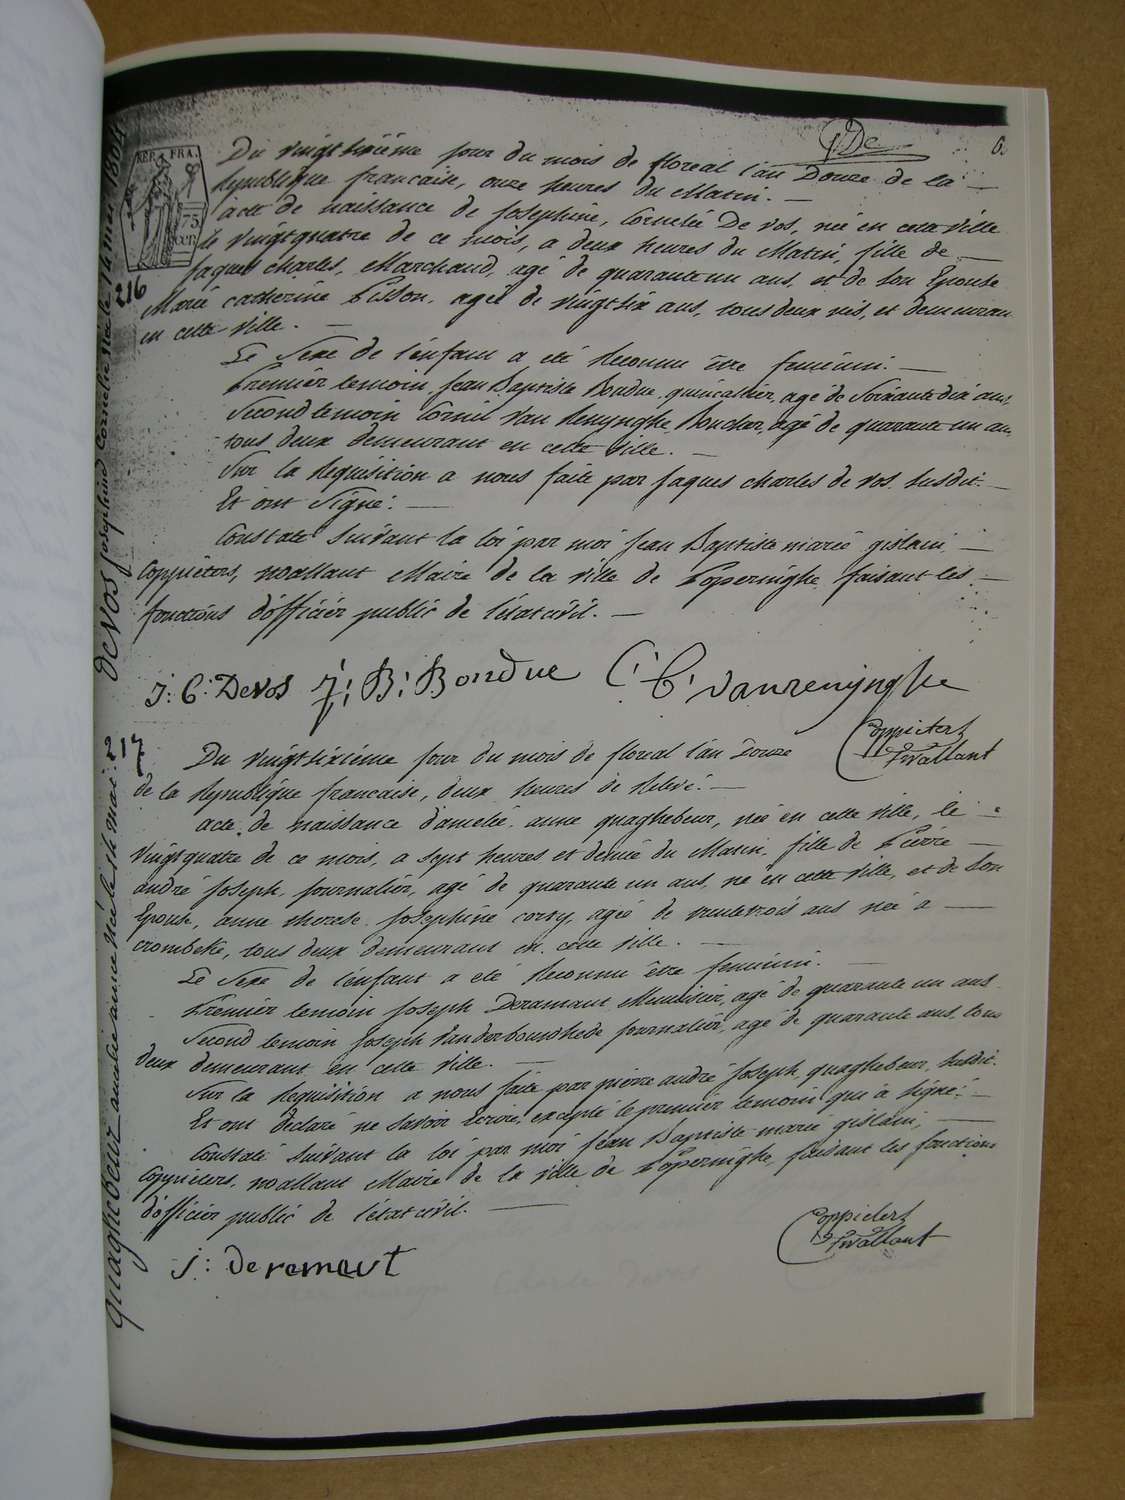 6.
REP. FRA.
75
CEN
Du vingtsixiéme jour du mois de floreal l'an Douze de la
Republique francaise, onze heures du Matin.
acte de naissance de Josephine, Cornelie De vos, née en cette ville
le vingtquatre de ce mois, a deux heures du Matin, fille de
Jaques Charles, Marchand, agé de quarante un ans, et de son Epouse
Marie catherine Lisson, agée de vingtsix ans, tous deux nés, et demeuran
en cette ville.
Le Sexe de l'enfant a été Reconnu être feminin.
Premiér temoin Jean Baptiste Bondue, quincallier, agé de soixante dix ans,
Second temoin Cornil Van Renynghe, Boucher, agé de quarante un an,
tous deux demeurant en cette ville.
Sur la Requisition a nous faite par Jaques charles de vos susdit.
Et ont Signé:
Constaté Suivant la loi par moi Jean Baptiste marié gislain
Coppieters, wallant Maire de la ville de Poperinghe faisant les
fonctions d'officiér public de l'état civil.
216
De VOS Josephine Cornelie née le 14 mei 1804
J: C: Devos J: B: Bondue C: C: vanrenynghe
Coppieters
twallant
217
Du vingtsixiéme jour du mois de floreal l'an Douze
de la Republique francaise, deux heures de Relevé.
acte de naissance d'amelié, anne quaghebeur, née en cette ville, le
vingtquatre de ce mois, a sept heures et demié du Matin, fille de Piérre
andré Joseph, journaliér, agé de quarante un ans, né en cette ville, et de son
Epouse, anne therese Josephine corty, agée de trentetrois ans née a
crombeke, tous deux demeurant en cette ville.
Le Sexe de l'enfant a eté Reconnu être feminin.
Premiér temoin Joseph Deramaut Menuisiér, agé de quarante un ans
Second temoin Joseph Vanderbouchede journaliér, agé de quarante ans, tous
deux demeurant en cette ville.
Sur la Requisition a nous faite par piérre andré Joseph quaghebeur, susdit.
Et ont declaré ne savoir Ecrire, excepté le premiér temoin qui a Signé:
Constaté Suivant la loi par moi Jean Baptiste marié gislain,
Coppieters, wallant Maire de la ville de Poperinghe, faisant les fonctions
d'officiér public de l'état civil.
quaghebeur amelie anne née le 14 mai
Coppieters
twallant
J: deremaut